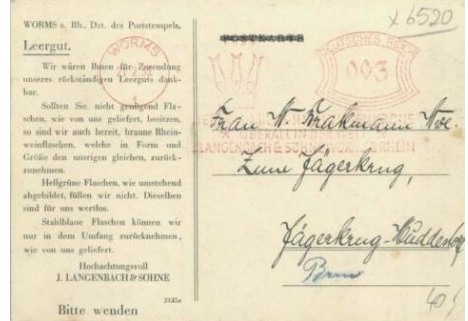 x 6520
WORMS a. Rh., Dat. des Poststempels,
Leergut.
Wir wären Ihnen für Zusendung
unseres rückständigen Leerguts dank-
bar.
Sollten Sie nicht genügend Fla-
schen, wie von uns geliefert, besitzen,
so sind wir auch bereit, braune Rhein-
weinflaschen, welche in Form und
Größe den unsrigen gleichen, zurück-
zunehmen.
Hellgrüne Flaschen, wie umstehend
abgebildet, füllen wir nicht. Dieselben
sind für uns wertlos.
Stahlblaue Flaschen können wir
nur in dem Umfang zurücknehmen,
wie von uns geliefert.
Hochachtungsvoll
J. LANGENBACH & SÖHNE
2125a
Bitte wenden
WORMS
POSTKARTE
DEUTSCHES REICH
003
LANGENBACH & SÖHNE WORMS RHEIN
Frau W. Brakmann Wwe.
Zum Jägerkrug,
Jägerkrug